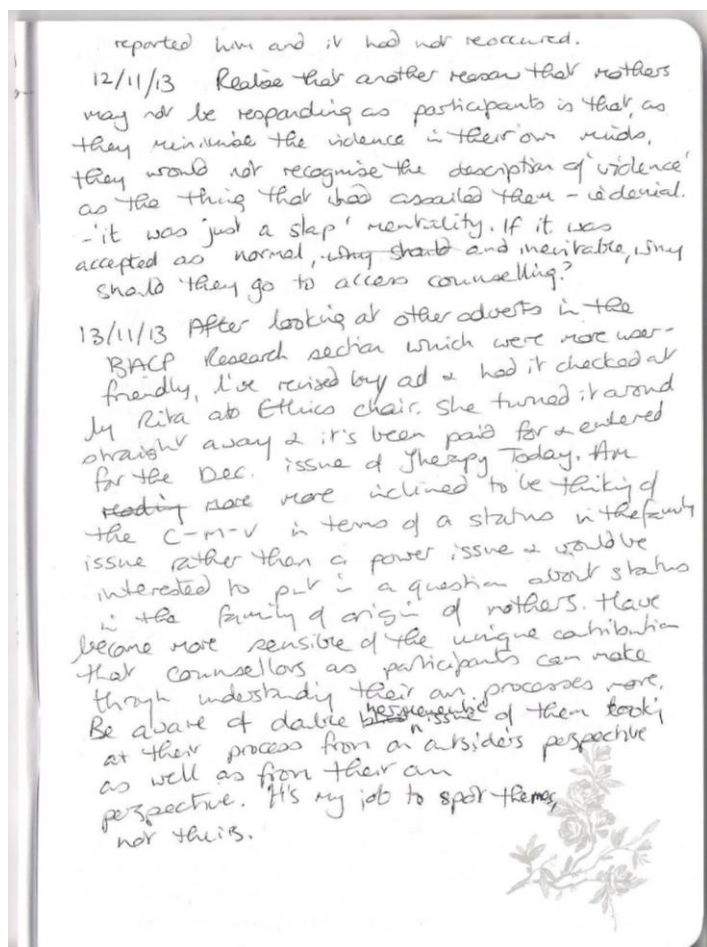 reported him and it had not reoccured.
12/11/13 Realise that another reason that mothers
may not be responding as participants is that, as
they minimise the violence in their own minds,
they would not recognise the description of 'violence'
as the thing that had assailed them – ie denial.
- 'it was just a slap' mentality. If it was
accepted as normal, why should and inevitable, why
should they go to access counselling?
13/11/13 After looking at other adverts in the
BACP Research section which were more user-
friendly, I've revised my ad & had it checked at
by Rita ab Ethics chair. She turned it around
straight away & it's been paid for & entered
for the Dec. issue of Therapy Today. Am
reading more more inclined to be thinking of
the C-M-V in terms of a status in the family
issue rather than a power issue & would be
interested to put in a question about status
in the family of origin of mothers. Have
become more sensible of the unique contribution
that counsellors as participants can make
through understanding their own processes more.
Be aware of double hermeneutic issue of them looking
at their process from an outsider's perspective
as well as from their own
perspective. It's my job to spot themes,
not theirs.